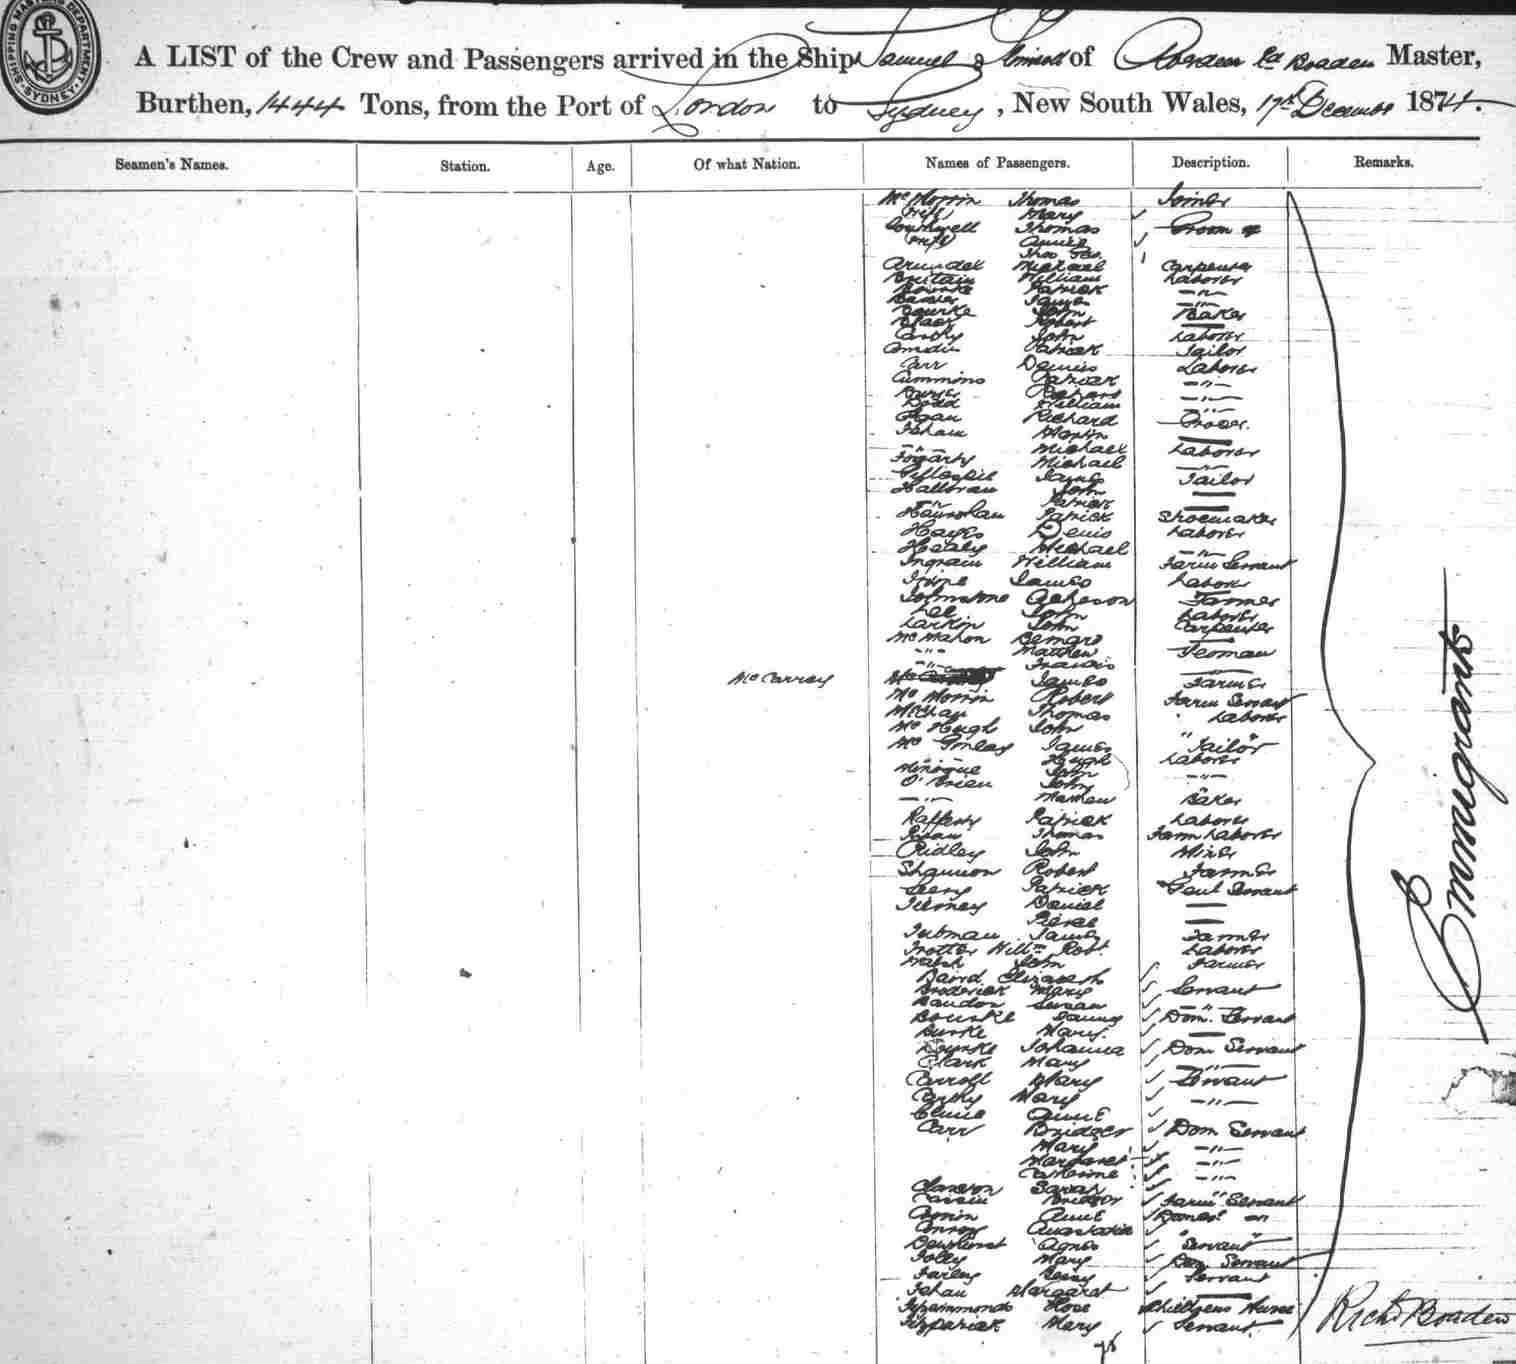 SHIPPING MASTERS DEPARTMENT
SYDNEY
A LIST of the Crew and Passengers arrived in the Ship Samuel of Aberdeen Rd Boaden Master,
Burthen, 1444 Tons, from the Port of London to Sydney, New South Wales, 17th December 1874.
Seamen's Names. Station. Age. Of what Nation. Names of Passengers. Description. Remarks.
McMorrin Thomas Joiner
Wife Mary ✓
Southwell Thomas Groom
Wife Annie ✓
Thos Geo.
Arundel Michael Carpenter
Brittain William Laborer
Bourke Patrick —"—
James —"—
Bourke John Baker
Black Robert —
John Laborer
Patrick Tailor
Carr Dennis Laborer
Cummins Patrick —"—
Richard —"—
Dodd William —"—
Egan Richard Grocer.
Martin —
—"— Michael Laborer
Fogarty Michael —"—
Gillespie James Tailor
Halloran John —
—"— Patrick —
Hanrahan Patrick Shoemaker
Hayes Denis Laborer
Healy Michael —"—
Ingram William Farm Servant
James Laborer
Johnstone Acheson Farmer
Lee John Laborer
Larkin John Carpenter
McMahon Bernard —
—"— Matthew Yeoman
—"— Francis
McCarrey James Farmer
McMorrin Robert Farm Servant
Thomas Laborer
McHugh John "
McGinley James Tailor
Hugh Laborer
Minogue John —"—
O'Brien John "
—"— Mathew Baker
Rafferty Patrick Laborer
Thomas Farm Laborer
Ridley John Miner
Shannon Robert Farmer
Patrick Genl Servant
Tierney Daniel —
Pierce —
Tubman James Farmer
Trotter Willm Robt. Laborer
Walsh John Farmer
Baird Elizabeth ✓
Broderick Mary ✓ Servant
Susan ✓ —"—
Bourke Fanny ✓ Dom. Servant
Burke Mary. ✓ —
Johanna ✓ Dom Servant
Clark Mary ✓ —"—
Carroll Mary ✓ Servant
Mary ✓ —"—
Annie ✓
Carr Bridget ✓ Dom Servant
Mary ✓ —"—
Margaret ✓ —"—
Catherine ✓ —"—
Sarah
Bridget ✓ Farm Servant
Anne ✓ Domest
Conroy Anastasia ✓ "
Dewhurst Agnes ✓ Servant
Mary ✓ Dom Servant
Farley ✓ Servant
Margaret ✓ —
Fitzsimmonds Rose Childrens Nurse
Fitzpatrick Mary ✓ Servant.
Emmigrants
Richd Boaden